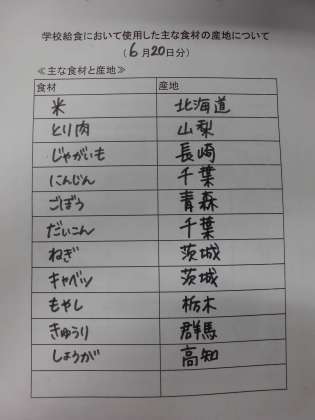 学校給食において使用した主な食材の産地について
(6月20日分)
≪主な食材と産地≫
食材 産地
米 北海道
とり肉 山梨
じゃがいも 長崎
にんじん 千葉
ごぼう 青森
だいこん 千葉
ねぎ 茨城
キャベツ 茨城
もやし 栃木
きゅうり 群馬
しょうが 高知